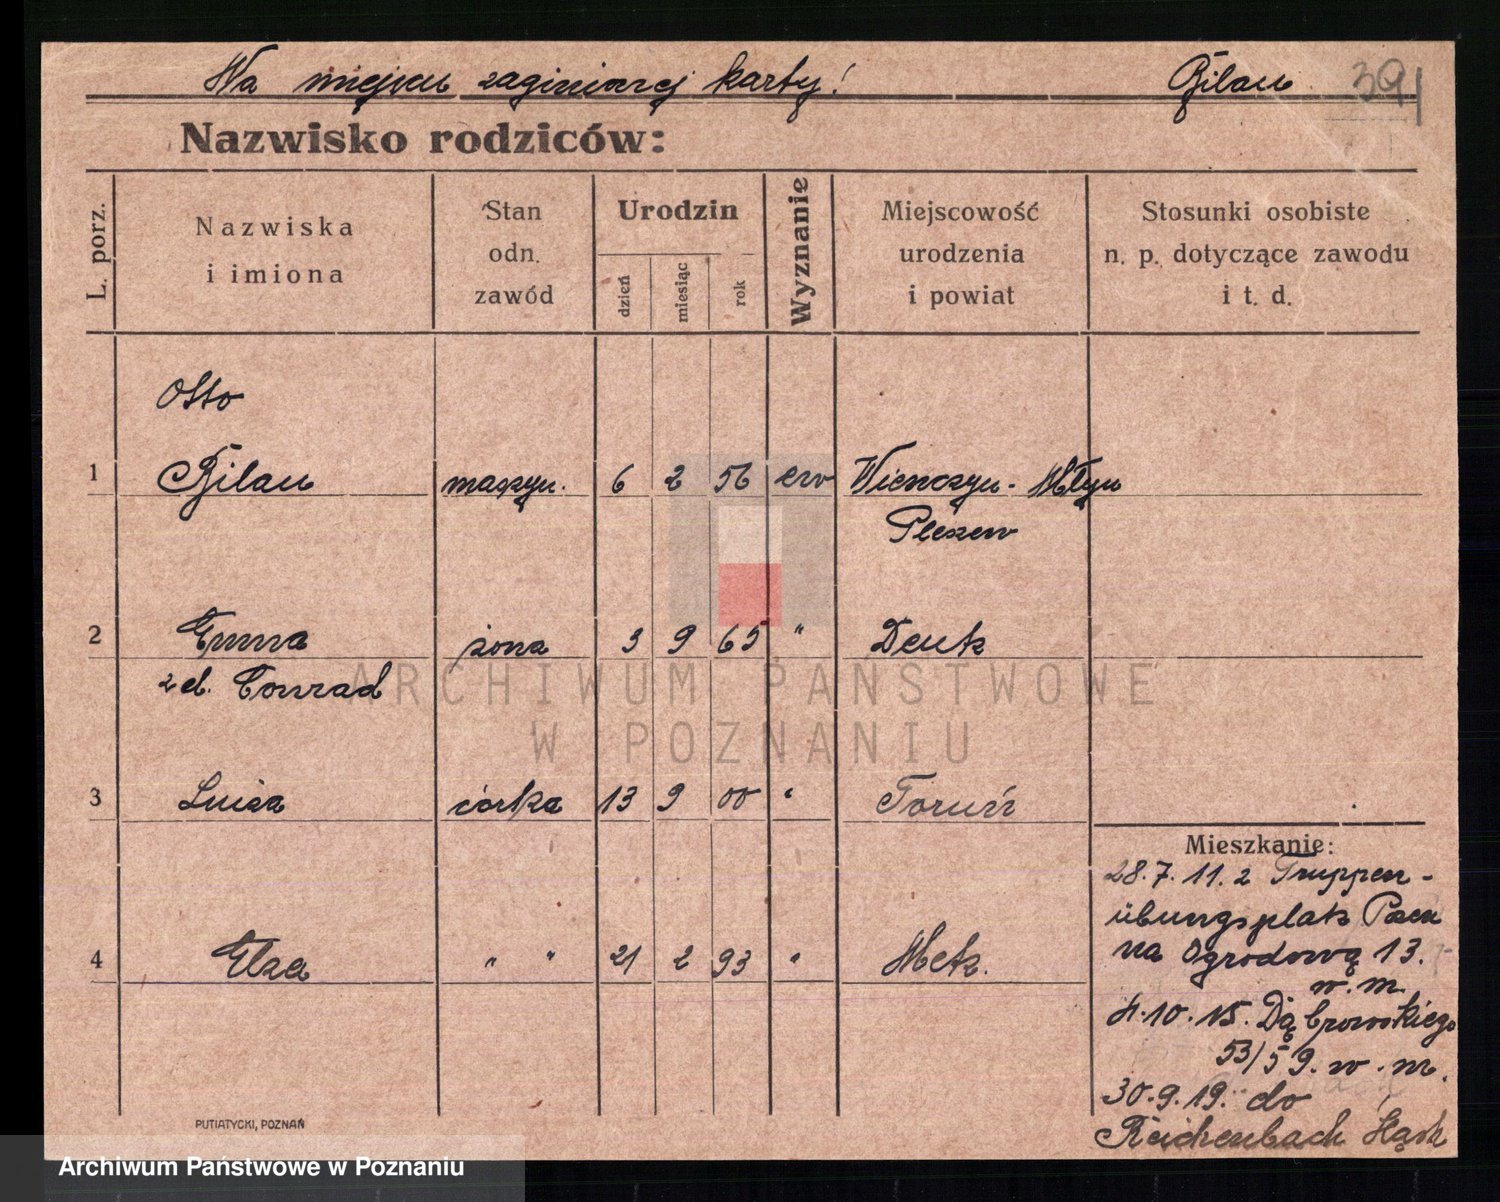 Na miejscu zaginionej karty! Bilau 391
Nazwisko rodziców:
L. porz.
Nazwiska
i imiona
Stan
odn.
zawód
Urodzin
dzień
miesiąc
rok
Wyznanie
Miejscowość
urodzenia
i powiat
Stosunki osobiste
n. p. dotyczące zawodu
i t. d.
Otto
1 Bilau maszyn. 6 2 56 ew Wieczyn - Młyn
Pleszew
2 Emma żona 3 9 65 " Deutz
z d. Conrad
3 Luiza córka 13 9 00 " Toruń
4 Elza " " 21 2 93 " Metz.
Mieszkanie:
28.7.11. z Truppen-
übungsplatz Posen
na Ogrodową 13.
w. m.
4.10.15. Dąbrowskiego
53/59. w. m.
30.9.19. do
Reichenbach Śląsk
PUTIATYCKI, POZNAŃ
ARCHIWUM PAŃSTWOWE
W POZNANIU
Archiwum Państwowe w Poznaniu